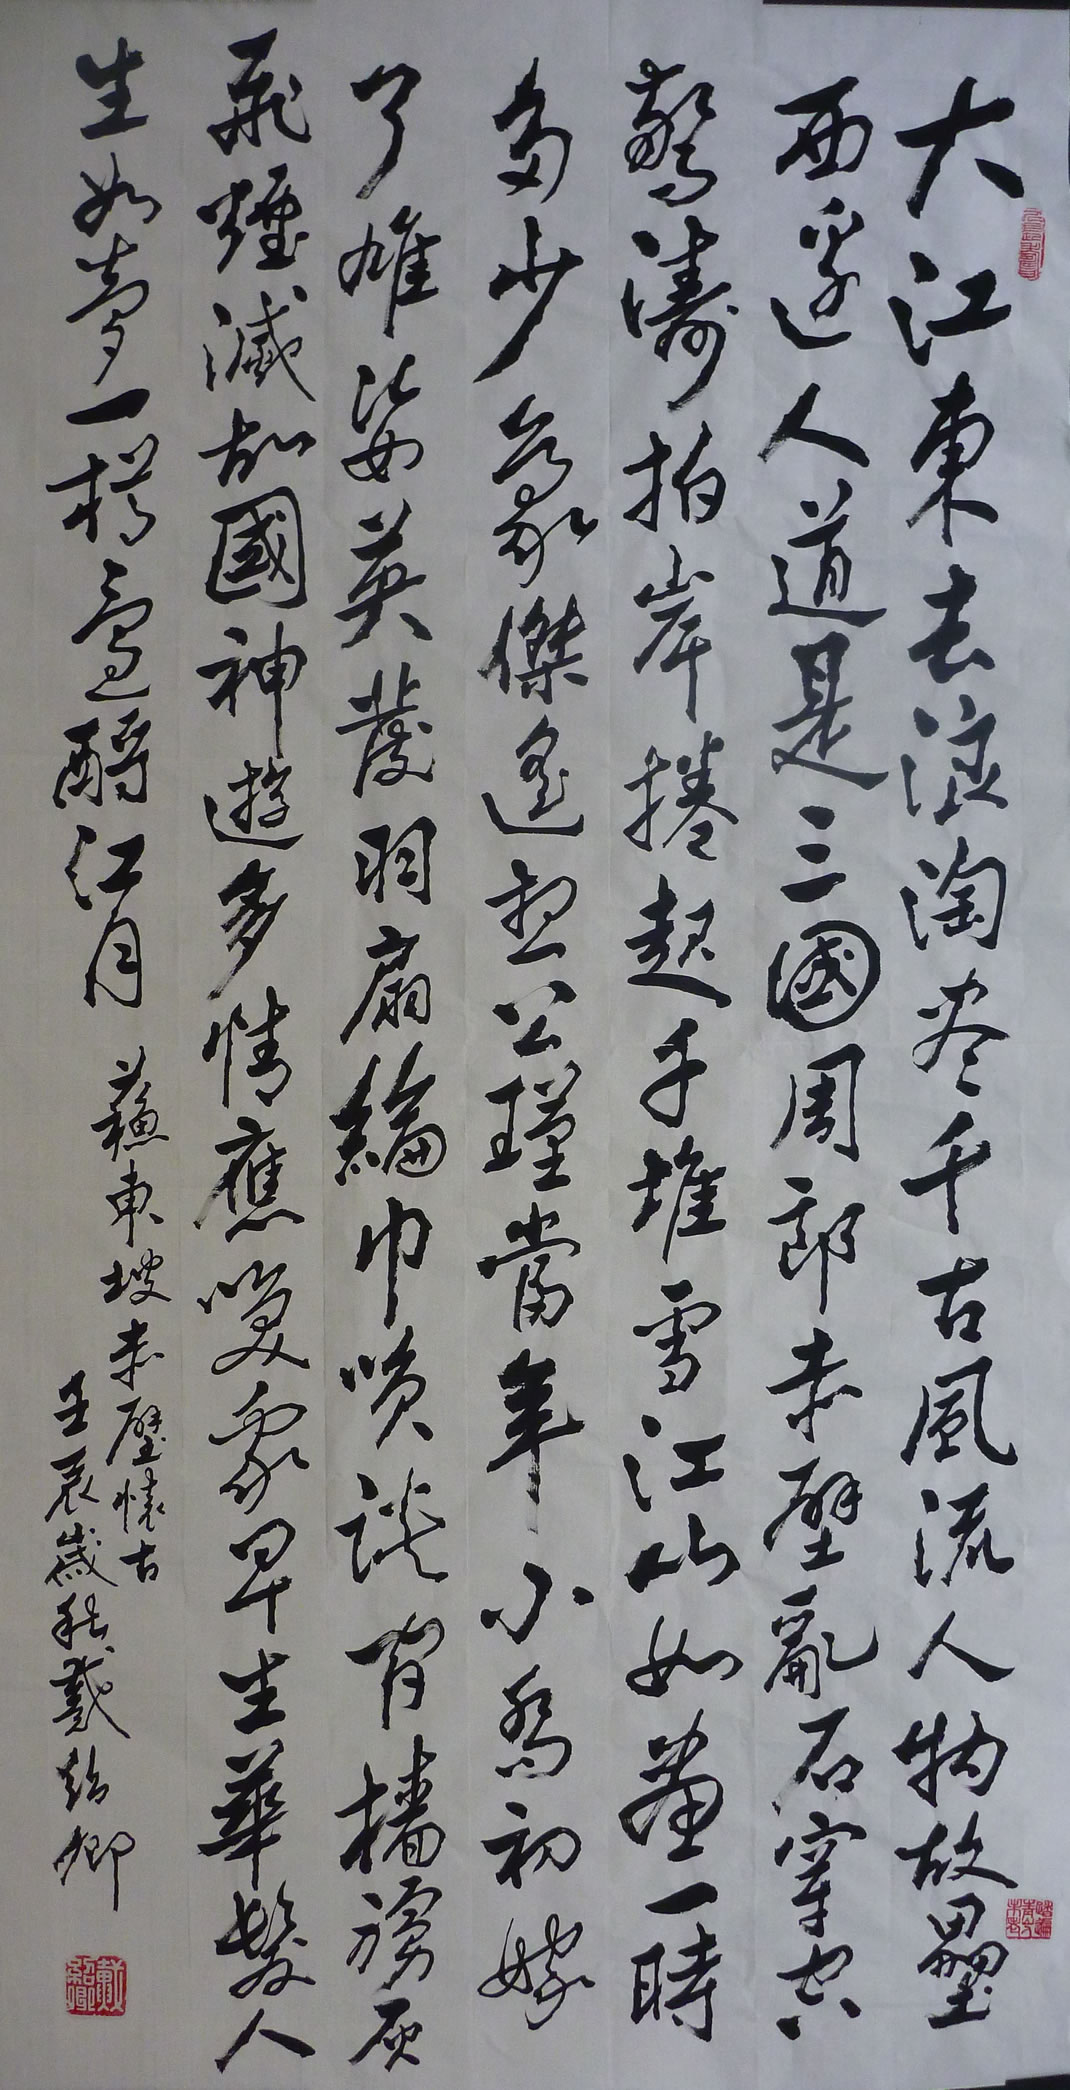 大江東去浪淘尽千古風流人物故壘
西邊人道是三國周郎赤壁亂石穿空
驚濤拍岸捲起千堆雪江山如畫一時
多少豪傑遙想公瑾當年小喬初嫁
了雄姿英發羽扇綸巾咲談間檣櫓灰
飛煙滅故國神遊多情應咲我早生華髮人
生如夢一樽還酹江月
蘇東坡赤壁懷古
壬辰歲秋戴紹卿
戴紹卿